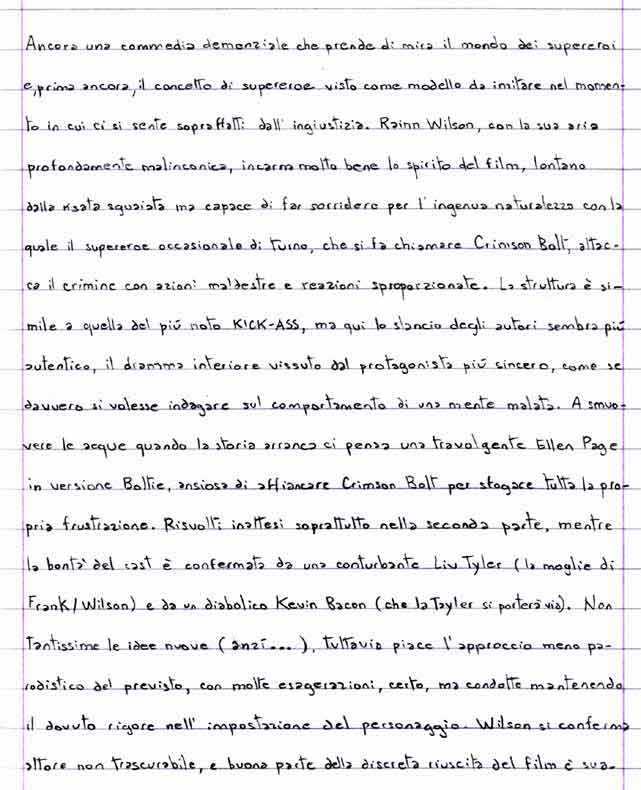 Ancora una commedia demenziale che prende di mira il mondo dei supereroi
e, prima ancora, il concetto di supereroe visto come modello da imitare nel momen-
to in cui ci si sente sopraffatti dall'ingiustizia. Rainn Wilson, con la sua aria
profondamente malinconica, incarna molto bene lo spirito del film, lontano
dalla risata sguaiata ma capace di far sorridere per l'ingenua naturalezza con la
quale il supereroe occasionale di turno, che si fa chiamare Crimson Bolt, attac-
ca il crimine con azioni maldestre e reazioni sproporzionate. La struttura è si-
mile a quella del più noto KICK-ASS, ma qui lo slancio degli autori sembra più
autentico, il dramma interiore vissuto dal protagonista più sincero, come se
davvero si volesse indagare sul comportamento di una mente malata. A smuo-
vere le acque quando la storia arranca ci pensa una travolgente Ellen Page
in versione Boltie, ansiosa di affiancare Crimson Bolt per sfogare tutta la pro-
pria frustrazione. Risvolti inattesi soprattutto nella seconda parte, mentre
la bontà del cast è confermata da una conturbante Liv Tyler (la moglie di
Frank/Wilson) e da un diabolico Kevin Bacon (che la Tayler si porterà via). Non
tantissime le idee nuove (anzi...), tuttavia piace l'approccio meno pa-
rodistico del previsto, con molte esagerazioni, certo, ma condotte mantenendo
il dovuto rigore nell'impostazione del personaggio. Wilson si conferma
attore non trascurabile, e buona parte della discreta riuscita del film è sua.